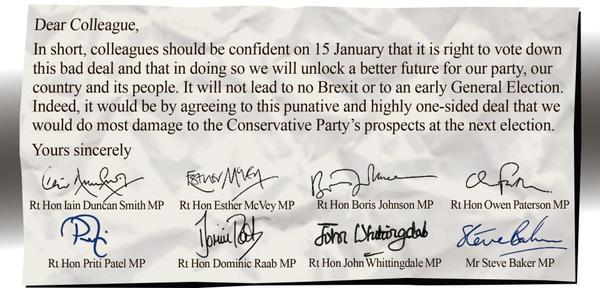 Dear Colleague,
In short, colleagues should be confident on 15 January that it is right to vote down
this bad deal and that in doing so we will unlock a better future for our party, our
country and its people. It will not lead to no Brexit or to an early General Election.
Indeed, it would be by agreeing to this punative and highly one-sided deal that we
would do most damage to the Conservative Party's prospects at the next election.
Yours sincerely
Iain Duncan Smith Esther McVey Boris Johnson
Rt Hon Iain Duncan Smith MP Rt Hon Esther McVey MP Rt Hon Boris Johnson MP Rt Hon Owen Paterson MP
Dominic Raab John Whittingdale Steve Baker
Rt Hon Priti Patel MP Rt Hon Dominic Raab MP Rt Hon John Whittingdale MP Mr Steve Baker MP